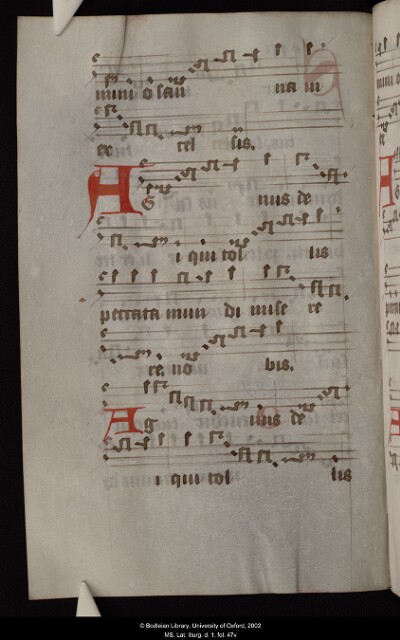 mini o san na in
ex cel sis.
A G nus de
i qui tol lis
peccata mun di mise re
re no bis.
A g nus de
i qui tol lis
© Bodleian Library, University of Oxford, 2002
MS. Lat. liturg. d. 1, fol. 47v